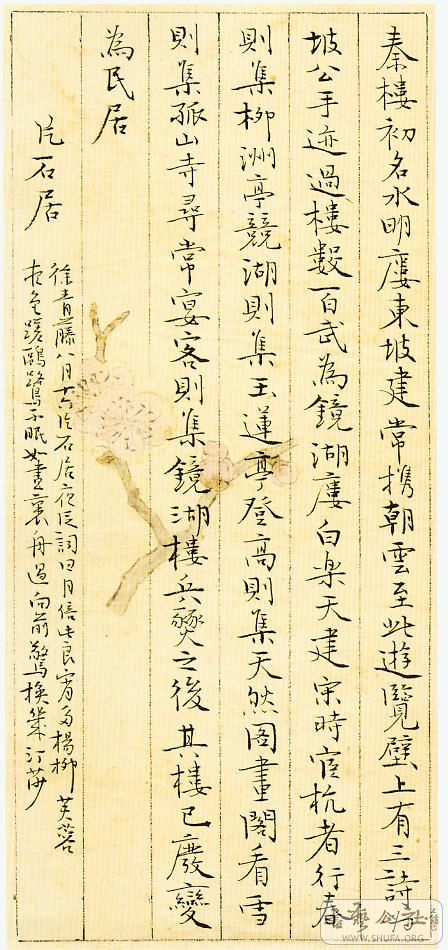 秦樓初名水明廔東坡建常携朝雲至此遊覽壁上有三詩
坡公手迹過樓數百武為鏡湖廔白楽天建宋時宦杭者行春
則集柳洲亭競湖則集玉蓮亭登高則集天然图畫閣看雪
則集孤山寺尋常宴客則集鏡湖樓兵燹之後其樓已廢變
為民居
片石居
徐青藤八月十六片石居夜泛詞曰月倍此良宵多楊柳芙蓉
夜色蹉鷗鷺不眠如晝裏舟過向前驚換幾汀莎
WWW.SHUFA.ORG